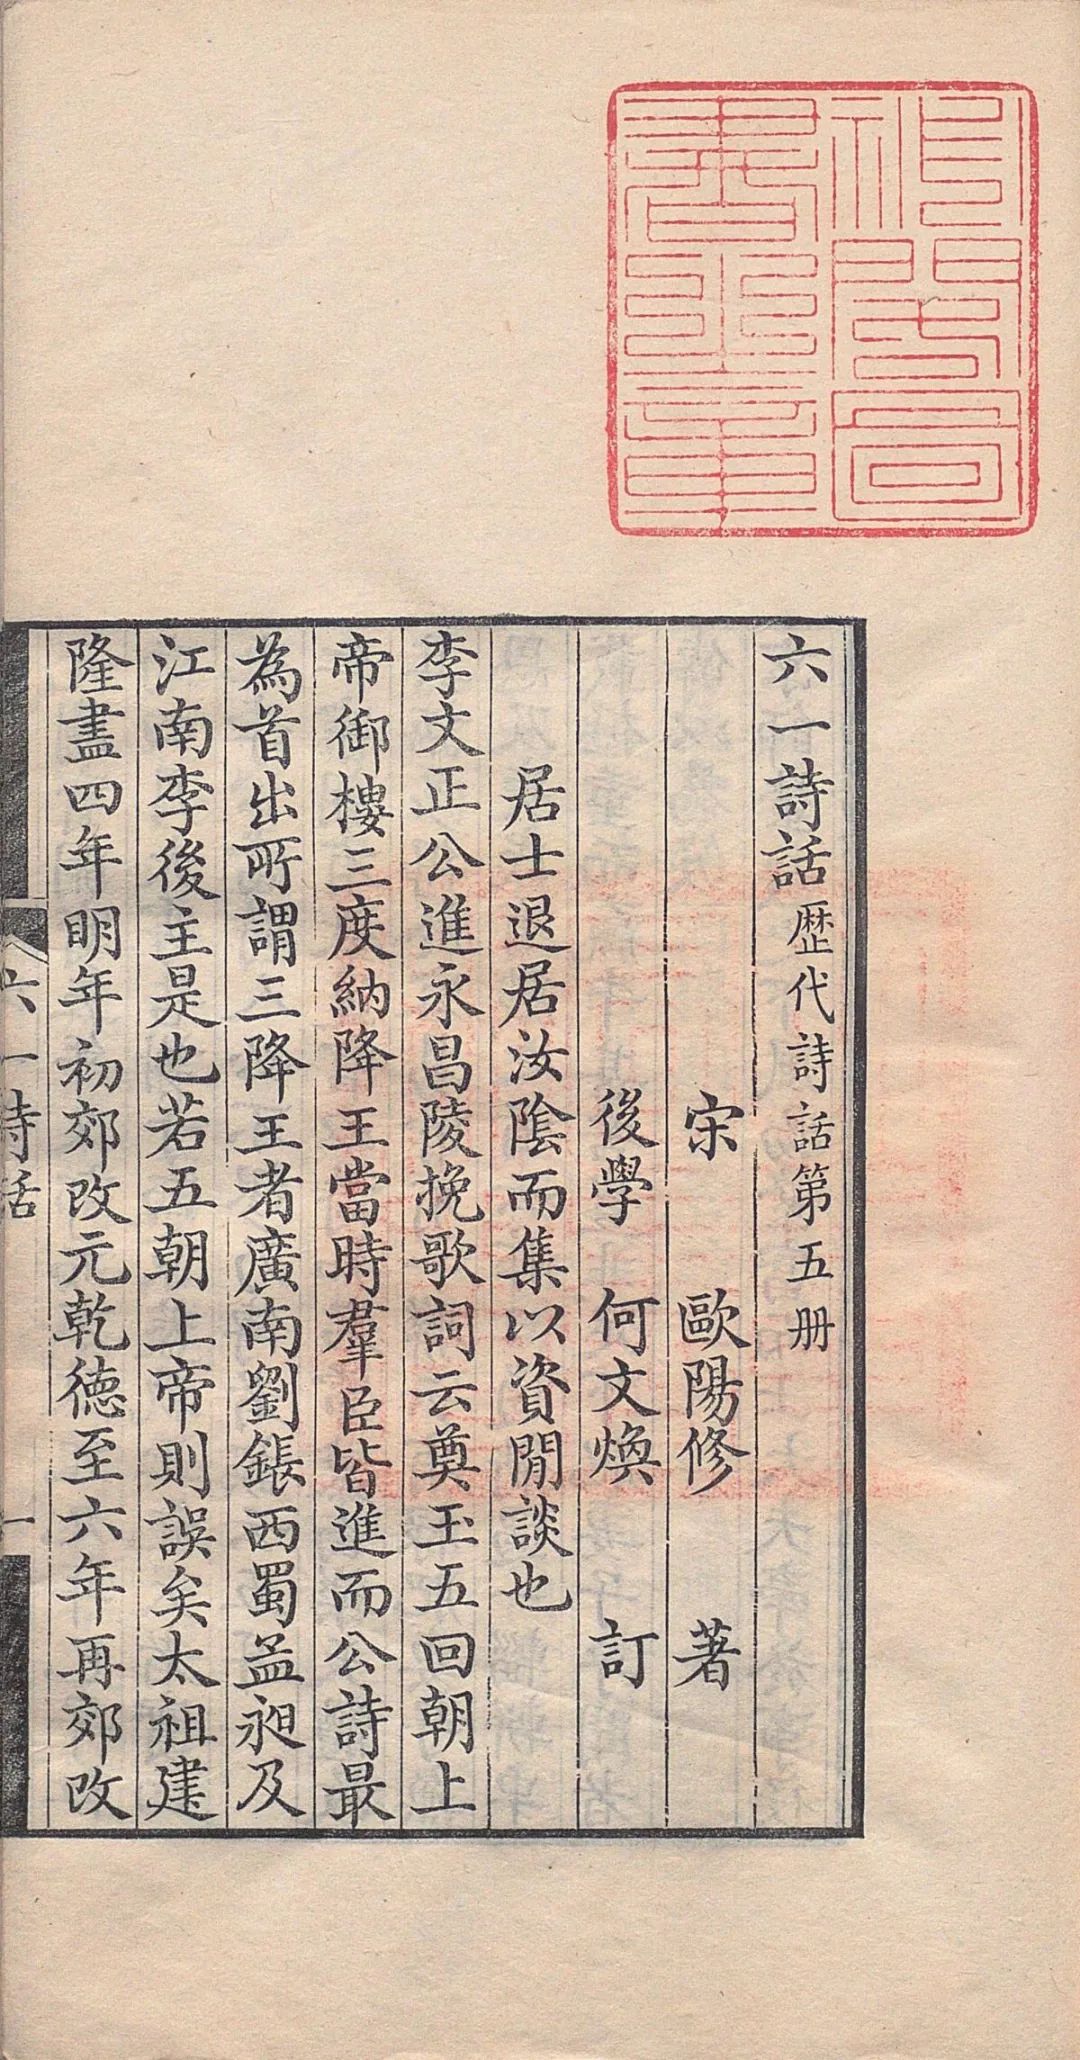 六一詩話歷代詩話第五册
宋 歐陽修 著
後學 何文煥 訂
居士退居汝陰而集以資閒談也
李文正公進永昌陵挽歌詞云奠玉五回朝上
帝御樓三度納降王當時羣臣皆進而公詩最
為首出所謂三降王者廣南劉鋹西蜀孟昶及
江南李後主是也若五朝上帝則誤矣太祖建
隆盡四年明年初郊改元乾德至六年再郊改
六一詩話
一